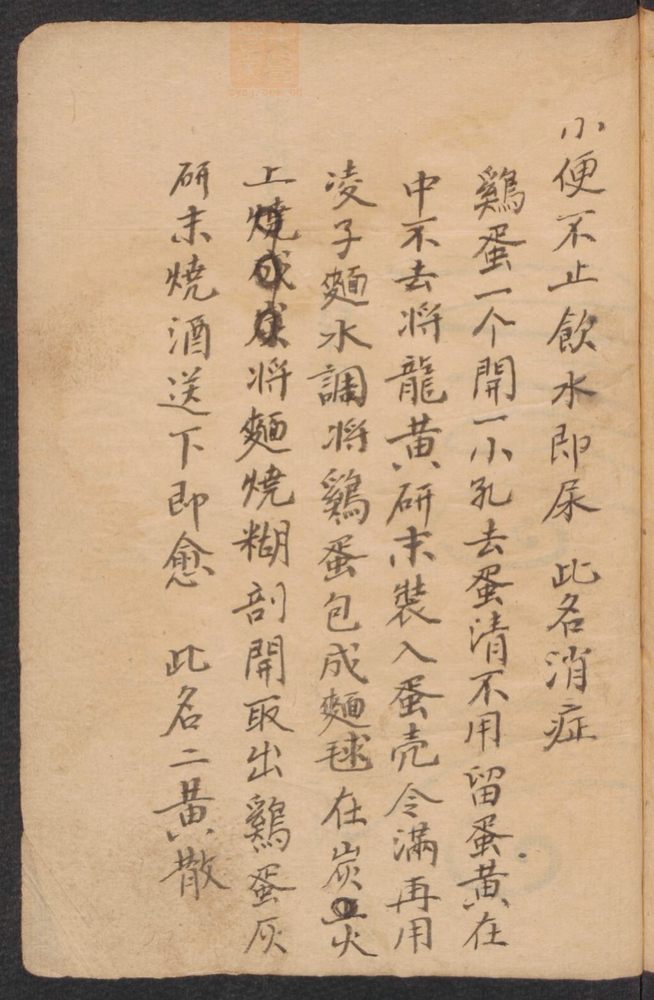 小便不止飲水即尿 此名消症
鷄蛋一个開一小孔去蛋清不用留蛋黄在
中不去将龍黄研末裝入蛋壳令滿再用
凌子麵水調将鷄蛋包成麵毬在炭火
上燒成将麵燒糊剖開取出鷄蛋灰
研末燒酒送下即愈 此名二黄散